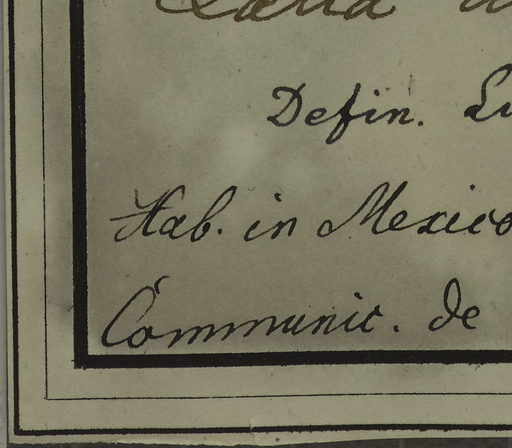 Defin.
Hab. in Mexico
Communic. de